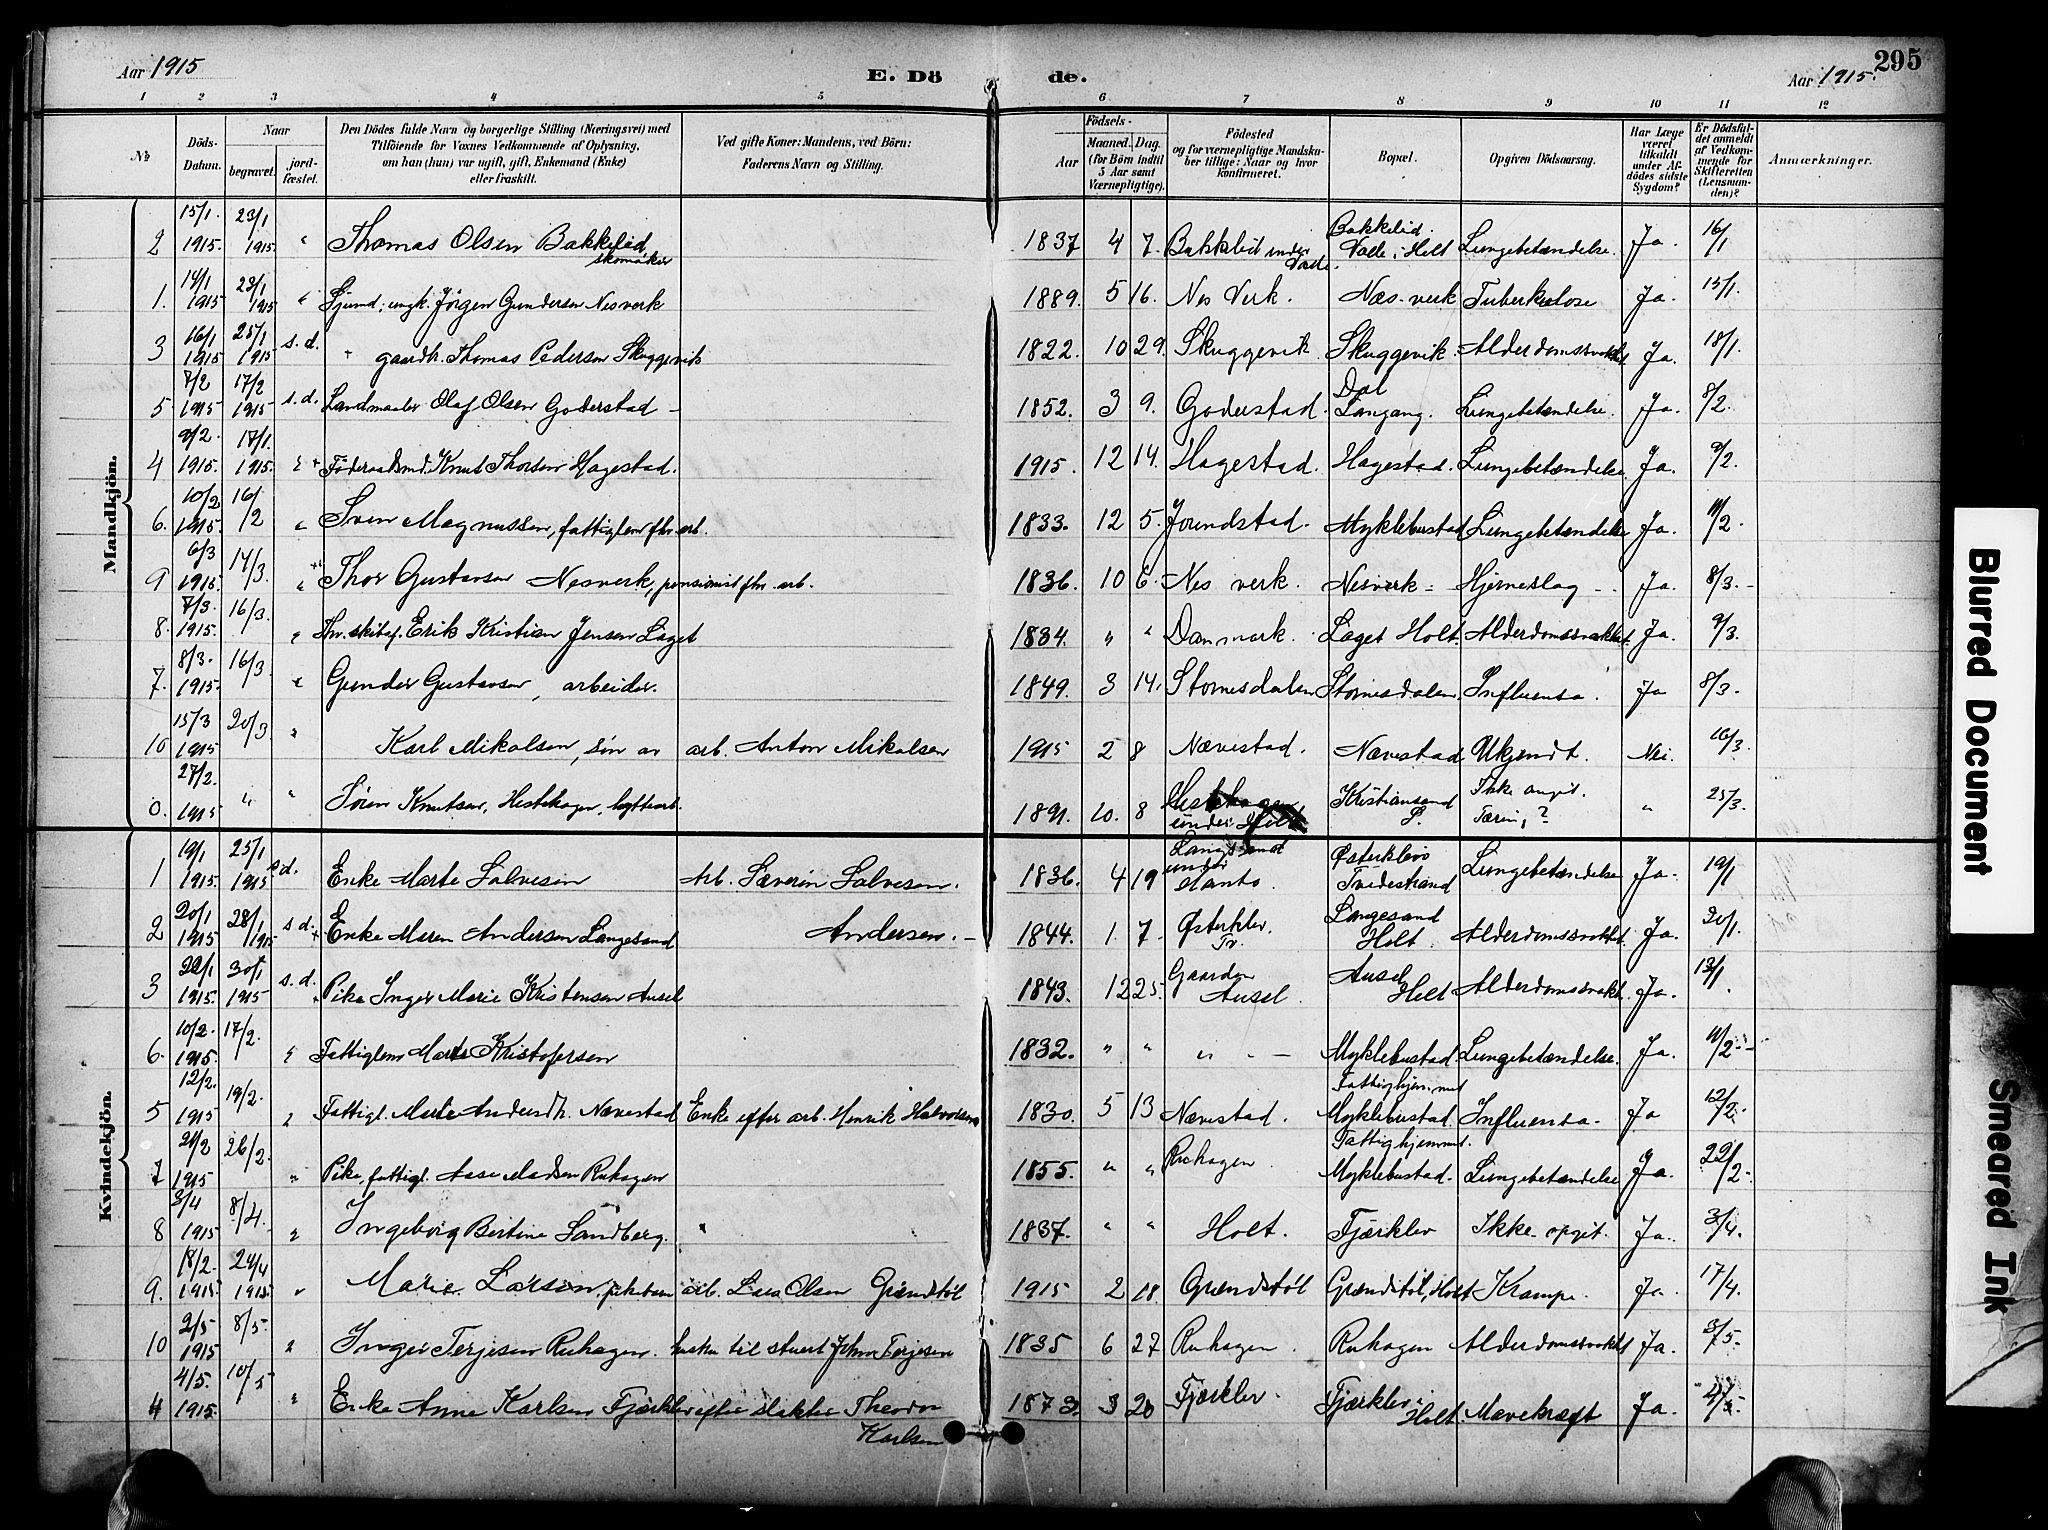 Aar 1915 E. Dö de. Aar 1915. 295
1 2 3 4 5 6 7 8 9 10 11 12
№ Döds-Datum. Naar begravet. jord-fæstet. Den Dödes fulde Navn og borgerlige Stilling (Næringsvei) med Tilföiende for Voxnes Vedkommende af Oplysning, om han (hun) var ugift, gift, Enkemand (Enke) eller fraskilt. Ved gifte Koner: Mandens, ved Börn: Faderens Navn og Stilling. Födsels- Aar Maaned. Dag. (for Börn indtil 5 Aar samt Værnepligtige). Födested og for værnepligtige Mandskaber tillige: Naar og hvor konfirmeret. Bopæl. Opgiven Dödsaarsag. Har Læge været tilkaldt under Afdödes sidste Sygdom? Er Dödsfaldet anmeldt af Vedkommende for Skifteretten (Lensmanden)? Anmærkninger.
Mandkjön.
2 15/1 1915. 23/1 1915. " Thomas Olsen Bakkelid skomaker 1837 4 7. Bakkelid under Valle. Bakkelid. Valle i Holt Lungebetændelse. Ja. 16/1
1. 14/1 1915 23/1 1915 " ungk. Jörgen Gundersen Nesverk 1889. 5 16. Nes Verk. Næs-verk Tuberkulose Ja. 15/1.
3 16/1 1915 25/1 1915 s.d. gaardbr. Thomas Pedersen Skuggevik 1822. 10 29. Skuggevik. Skuggevik. Alderdomssvakhet Ja. 18/1.
5. 7/2 1915 17/2 1915 s.d. Landmaaler Olaf Olsen Goderstad - 1852. 3 9. Goderstad. Dal Langang. Lungebetændelse. Ja. 8/2.
4 9/2. 1915. 17/1. 1915. Föderaadsmd. Knut Thorsen Hagestad. 1915. 12 14. Hagestad. Hagestad. Lungebetændelse. Ja. 9/2.
6. 10/2 1915. 16/2 " Sven Magnussen, fattiglem fhr. arb. 1833. 12 5. Jorundstad. Myklebustad Lungebetændelse Ja. 11/2.
9 6/3 1915. 14/3. " Thor Gustavsen Nesverk, pensionist fhr. arb. 1836. 10 6. Nes verk. Nesverk - Hjerneslag - Ja. 8/3.
8. 7/3. 1915. 16/3. " Erik Kristian Jensen Laget 1834. " " Danmark. Laget Holt. Alderdomssvakhet. Ja. 9/3.
7. 8/3. 1915. 16/3 " Gunder Gustavsen, arbeider. 1849. 3 14. Stornesdalen Stornesdalen. Influensa. Ja 8/3.
10 15/3 1915 20/3 " Karl Mikalsen, sön av arb. Anton Mikalsen 1915 2 8 Nævestad. Nævestad Ukjendt. Nei. 16/3.
0. 27/2. 1915 " " Sören Knutsen, Hestehagen, 1891. 10. 8 Hestehagen under Holt Kristiansand S. Ikke angit. Tæring? " 25/3.
Kvindekjön.
1 19/1 1915 25/1 1915 s.d. Enke Marte Salvesen Arb. Sæverin Salvesen. 1836. 4 19 under Østerklev Tvedestrand Lungebetændelse Ja. 19/1
2 20/1 1915 28/1 1915 s.d. Enke Maren Andersen Langesand Andersen. - 1844. 1. 7. Østerklev, Tv. Langesand Holt. Alderdomssvakhet. Ja. 20/1.
3 22/1 1915. 30/1 1915 s.d. Pike Inger Marie Kristensen Ausel 1843. 12 25. Gaarden Ausel. Ausel Holt Alderdomssvakh. Ja. 13/1.
6. 10/2. 1915. 17/2. Fattiglem Marte Kristofersen 1832. " " " - Myklebustad. Lungebetændelse. Ja. 11/2 --
5 12/2. 1915 19/2. " Fattigl. Marte Andersdt. Nævestad Enke efter arb. Henrik Halvorsen 1830. 5 13 Nævestad. Fattighjemmet Myklebustad. Influensa. Ja 12/2.
7 21/2 1915 26/2. " Pike, fattigl. Aase Madsen Ruhagen 1855. " " Ruhagen. Fattighjemmet. Myklebustad. Lungebetændelse Ja. 22/2.
8 3/4 1915 8/4. " Ingeborg Bertine Sandberg. " 1837. " " Holt. Fjærklev Ikke opgit. Ja. 3/4.
9. 18/2. 1915. 24/4 1915. " Marie Larsen, pikebarn arb. Lars Olsen Grændstöl 1915 2 18. Grændstöl Grændstöl, Holt Krampe. Ja. 17/4.
10 2/5 1915 8/5. " Inger Terjesen Ruhagen. enke til stuert John Terjesen 1835 6 27 Ruhagen. Ruhagen Alderdomssvakhet Ja. 3/5.
4 4/5. 1915. 10/5 " Enke Anne Karlsen Fjærklev efter slakter Theodor Karlsen 1873. 3 20 Fjærklev. Fjærklev. Holt Mavekræft Ja. 4/5.
Blurred Document
Smeared Ink